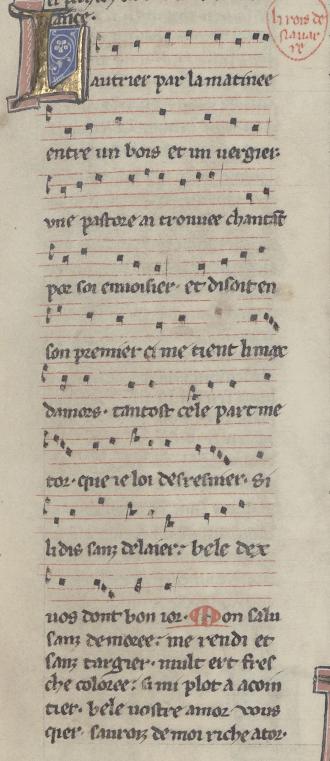 li rois de
navar
re
L autrier par la matinee
entre un bois et un uergier.
vne pastore ai trouuee chantāt
por soi enuoisier. et disoit en
son premier ci me tient li max
damors. tantost cele part me
tor. que ie loi desresnier. Si
li dis sanz delaier: bele dex
uos dont bon ior. Mon salu
sanz demoree: me rendi et
sanz targier. mult ert fres
che coloree: si mi plot a acoin
tier. bele uostre amor vous
qier. sauroiz de moi riche ator.